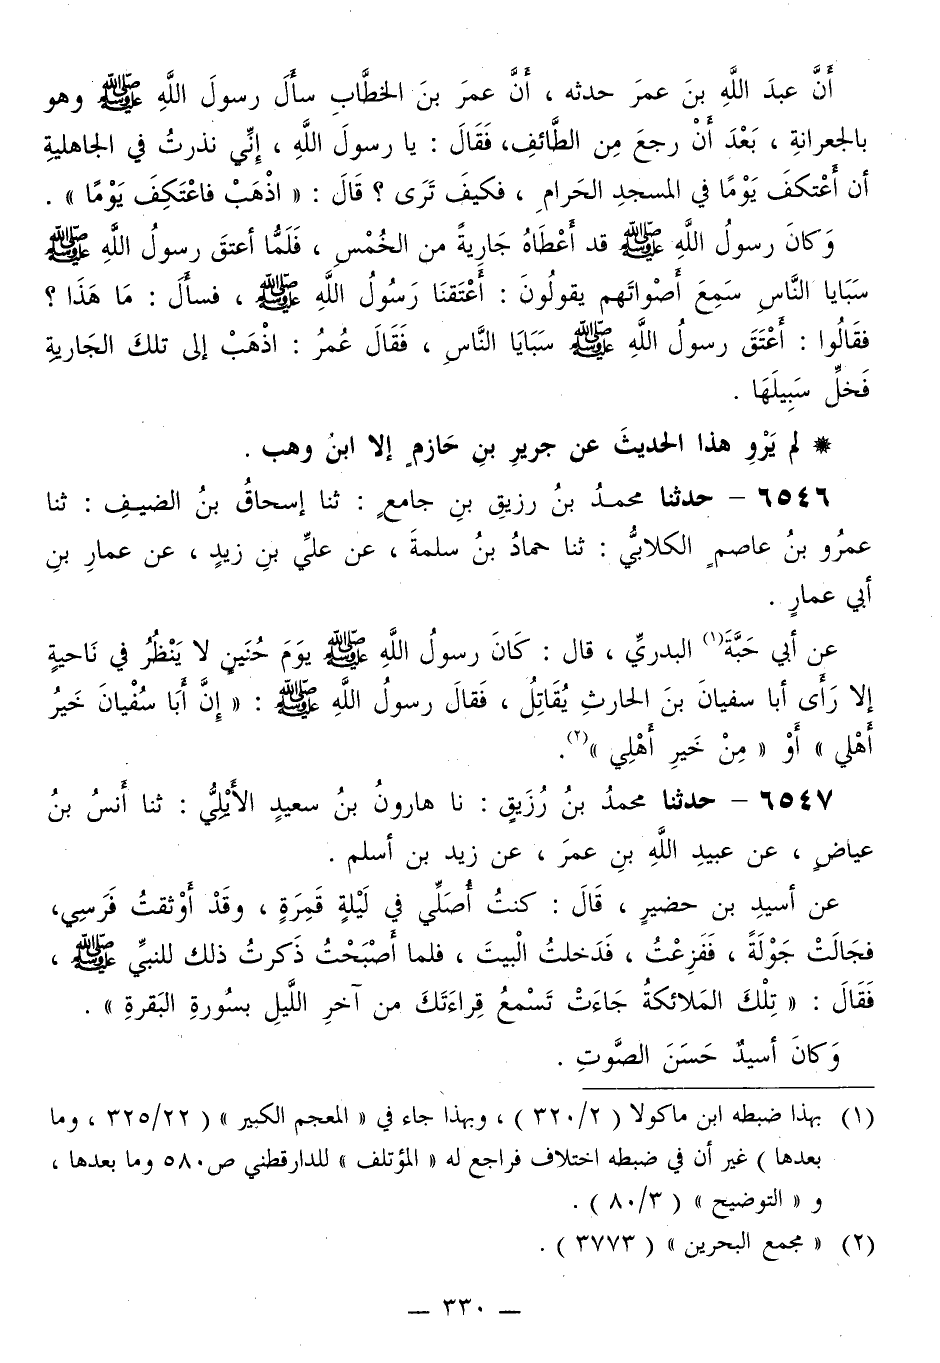 أَنَّ عبدَ اللَّهِ بنَ عمرَ حدثه ، أَنَّ عمرَ بنَ الخطَّابِ سأَلَ رسولَ اللَّهِ ﷺ وهو
بالجعرانةِ ، بَعْدَ أَنْ رجعَ مِن الطَّائفِ، فَقَالَ : يا رسولَ اللَّهِ ، إِنِّي نذرتُ في الجاهليةِ
أن أَعْتكفَ يَوْمًا في المسجدِ الحَرامِ ، فكيفَ تَرَى ؟ قَالَ : « اذْهَبْ فاعْتَكِفَ يَوْمًا » .
وَكانَ رسولُ اللَّهِ ﷺ قد أَعْطَاهُ جَارِيةً من الخُمْسِ ، فَلَمَّا أعتقَ رسولُ اللَّهِ ﷺ
سَبَايا النَّاسِ سَمِعَ أَصْواتَهم يقولُونَ : أَعْتَقنَا رَسُولُ اللَّهِ ﷺ ، فسأَلَ : مَا هَذَا ؟
فقَالُوا : أَعْتَقَ رسولُ اللَّهِ ﷺ سَبَايَا النَّاسِ ، فَقَالَ عُمرُ : اذْهَبْ إلى تلكَ الجَاريةِ
فَخلِّ سَبِيلَهَا .
* لم يَرْوِ هذا الحديثَ عن جريرِ بنِ حَازمٍ إلا ابنُ وهب .
٦٥٤٦ – حدثنا محمدُ بنُ رزيقِ بنِ جامعٍ : ثنا إسحاقُ بنُ الضيفِ : ثنا
عمرُو بنُ عاصمٍ الكلابيُّ : ثنا حمادُ بنُ سلمةَ ، عن عليِّ بنِ زيدٍ ، عن عمارِ بنِ
أبي عمارٍ .
عن أبي حَبَّةَ(١) البدريِّ ، قال : كَانَ رسولُ اللَّهِ ﷺ يوَمَ حُنَينٍ لا يَنْظُرُ في نَاحيةٍ
إلا رَأَى أبا سفيانَ بنَ الحارثِ يُقَاتِلُ ، فَقالَ رسولُ اللَّهِ ﷺ : « إِنَّ أَبَا سُفْيانَ خَيرُ
أَهْلي » أَوْ « مِنْ خَيرِ أَهْلِي »(٢).
٦٥٤٧ – حدثنا محمدُ بنُ رُزَيقٍ : نا هارونُ بنُ سعيدٍ الأَيْلِيُّ : ثنا أَنسُ بنُ
عياضٍ ، عن عبيدِ اللَّهِ بنِ عمرَ ، عن زيد بن أسلم .
عن أسيدِ بن حضيرٍ ، قَالَ : كنتُ أُصَلِّي في لَيْلةٍ قَمِرَةٍ ، وقَدْ أَوْثقتُ فَرَسِي،
فجالَتْ جَوْلَةً ، فَفَزِعْتُ ، فَدَخلتُ الْبيتَ ، فلما أَصْبَحْتُ ذَكرتُ ذلك للنبيِّ ﷺ ،
فَقَالَ : « تِلْكَ المَلائكةُ جَاءَتْ تَسْمعُ قِراءَتَكَ من آخرِ اللَّيلِ بسُورةِ البَقرةِ » .
وَكانَ أسيدٌ حَسَنَ الصَّوتِ .
(١) بهذا ضبطه ابن ماكولا ( ٣٢٠/٢ ) ، وبهذا جاء في « المعجم الكبير » ( ٣٢٥/٢٢ ، وما
بعدها ) غير أن في ضبطه اختلاف فراجع له « المؤتلف » للدارقطني ص٥٨٠ وما بعدها ،
و « التوضيح » ( ٨٠/٣ ) .
(٢) « مجمع البحرين » ( ٣٧٧٣ ) .
– ٣٣٠ –